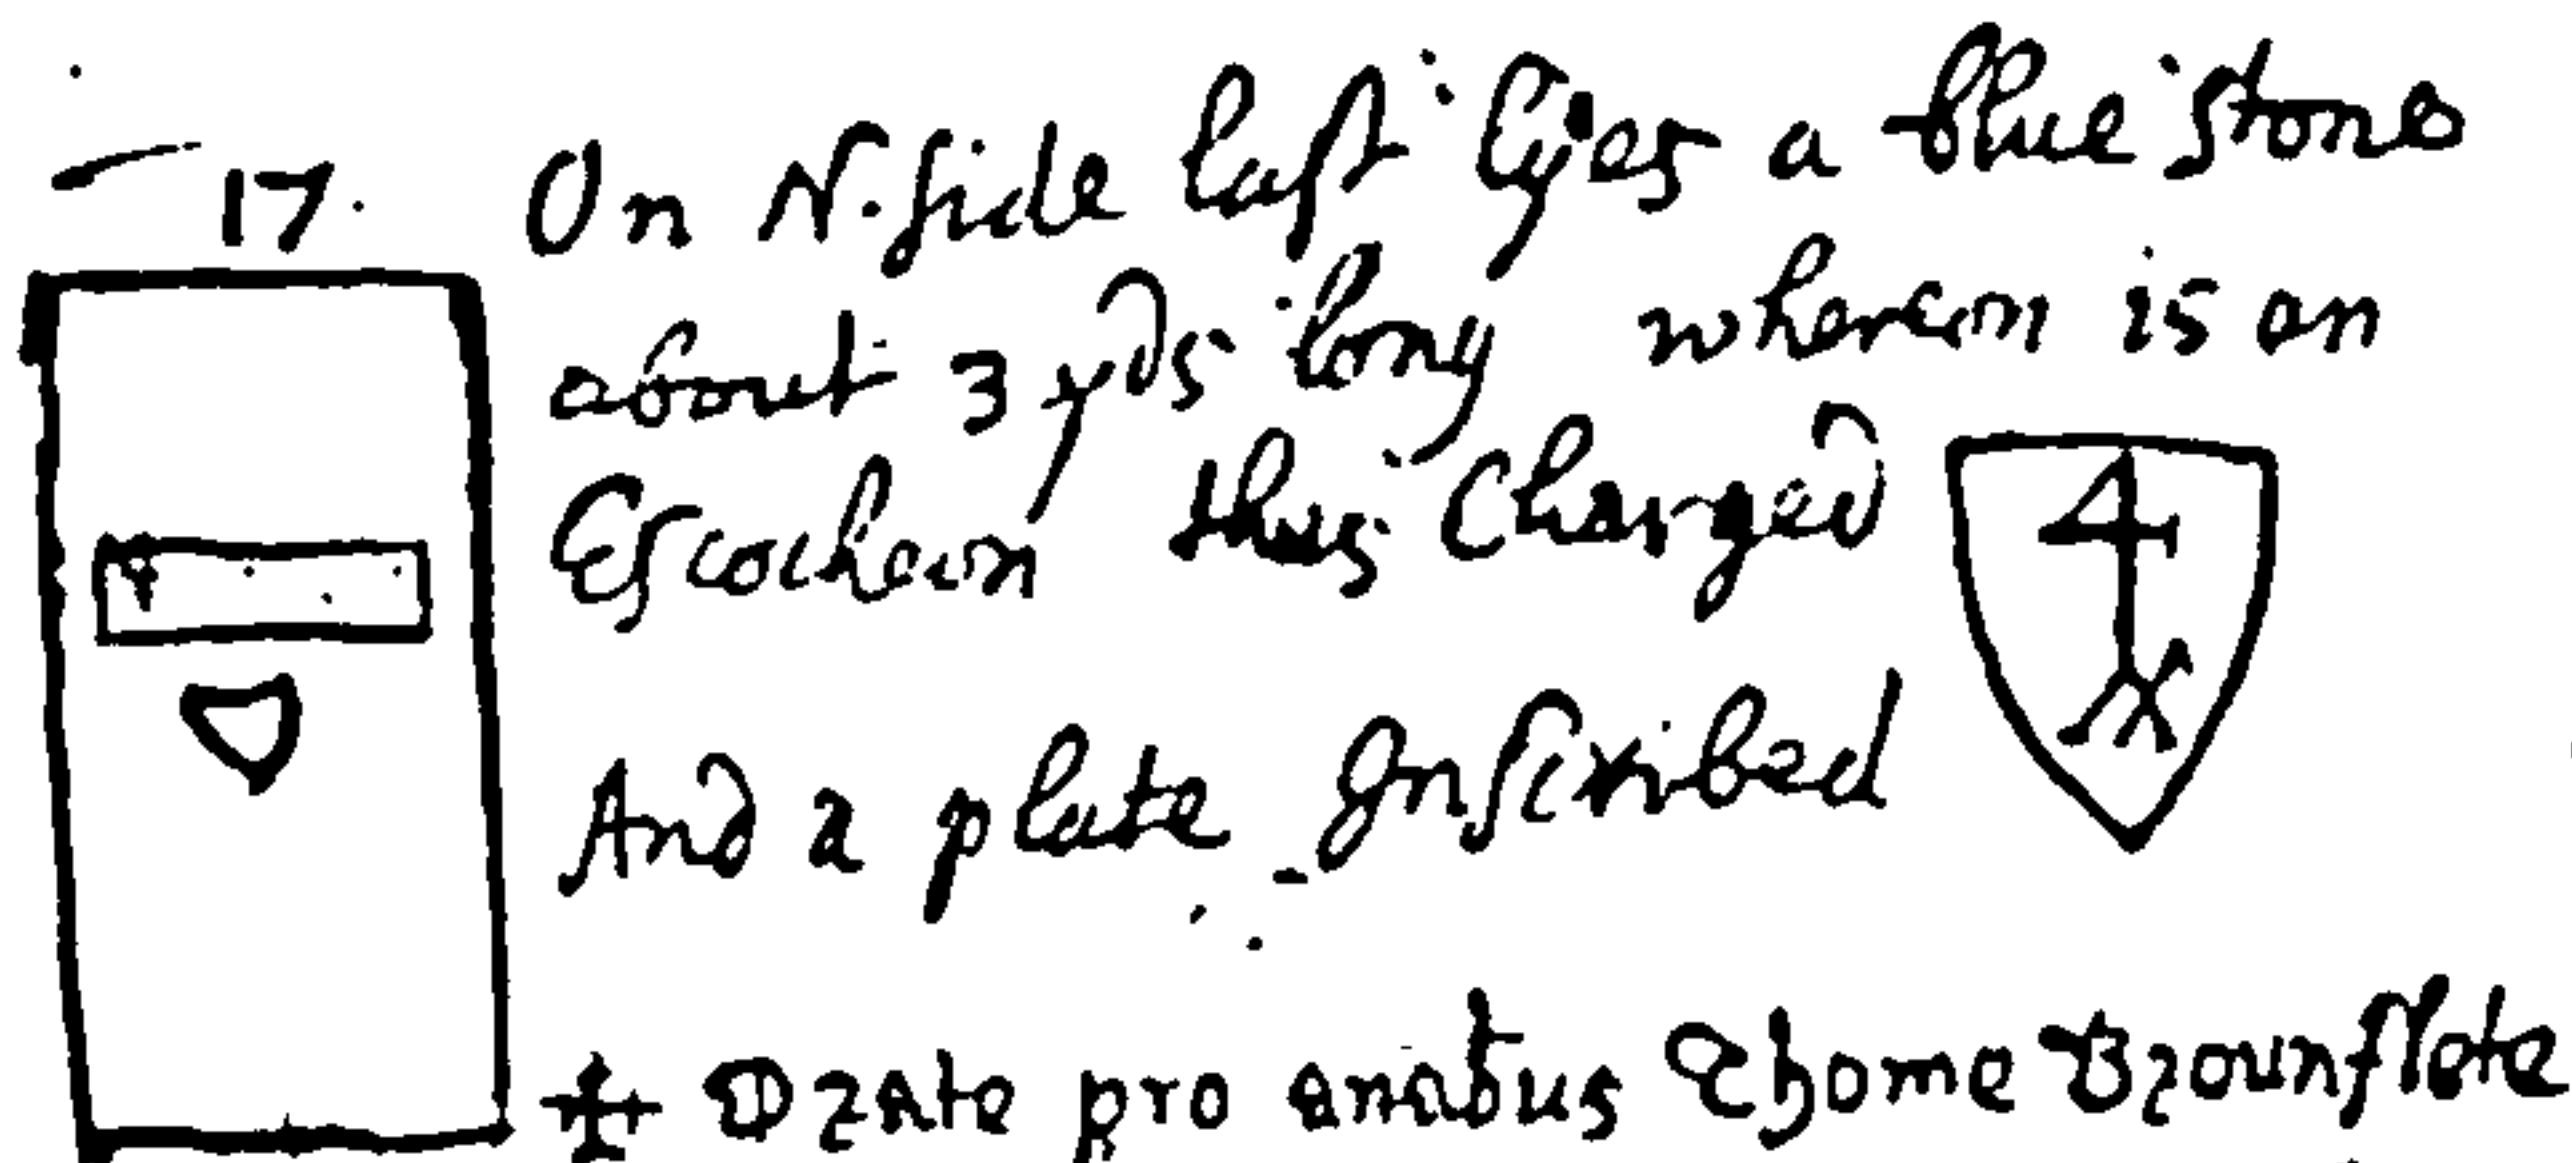 17. On N. ſide laſt lyes a blue stone
about 3 yds long wherein is an
Eſcocheon thus Charged
And a plate Inſcribed
✠ Orate pro anabus Thome Brounflete